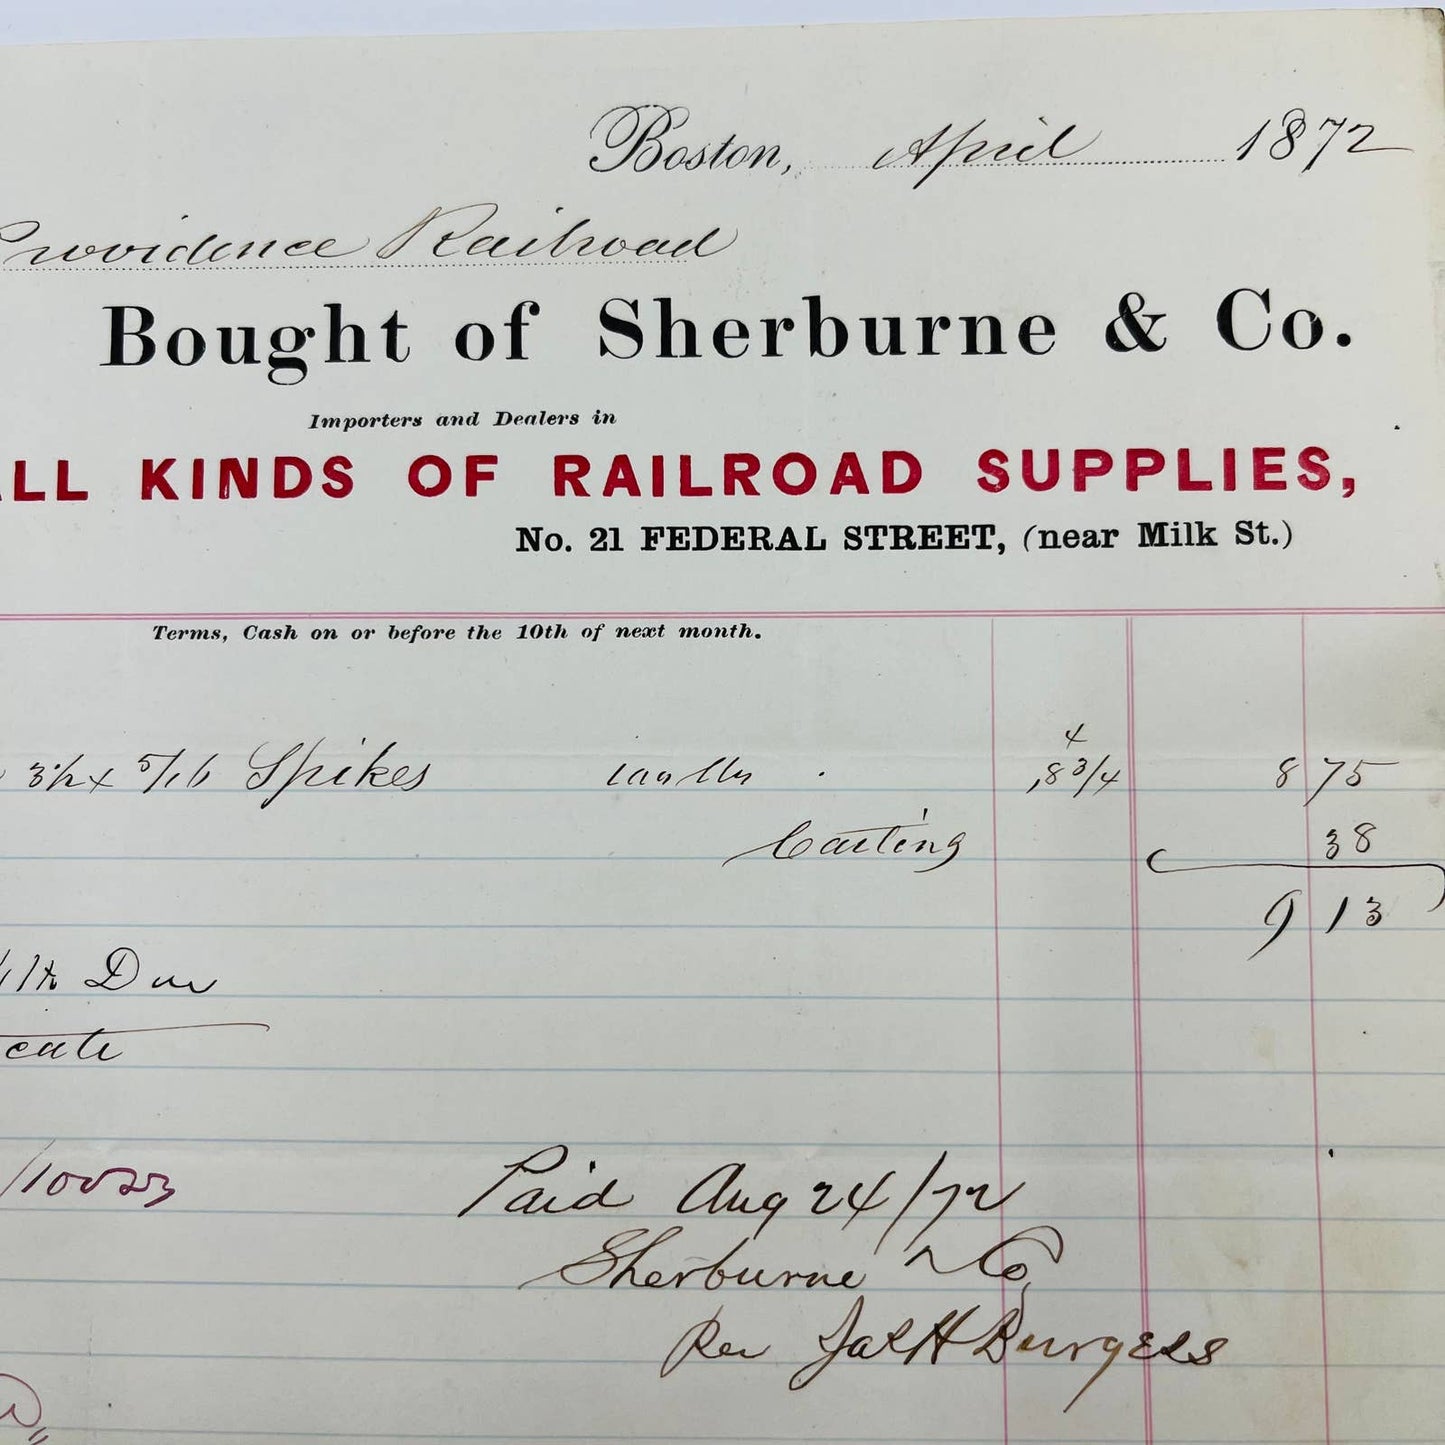 Boston, April 1872
Providence Railroad
Bought of Sherburne & Co.
Importers and Dealers in
ALL KINDS OF RAILROAD SUPPLIES,
No. 21 FEDERAL STREET, (near Milk St.)
Terms, Cash on or before the 10th of next month.
3½ x 5/16 Spikes ,8 3/4 8 75
Carting 38
9 13
Paid Aug 24/72
Sherburne & Co,
Per Jas H Burgess